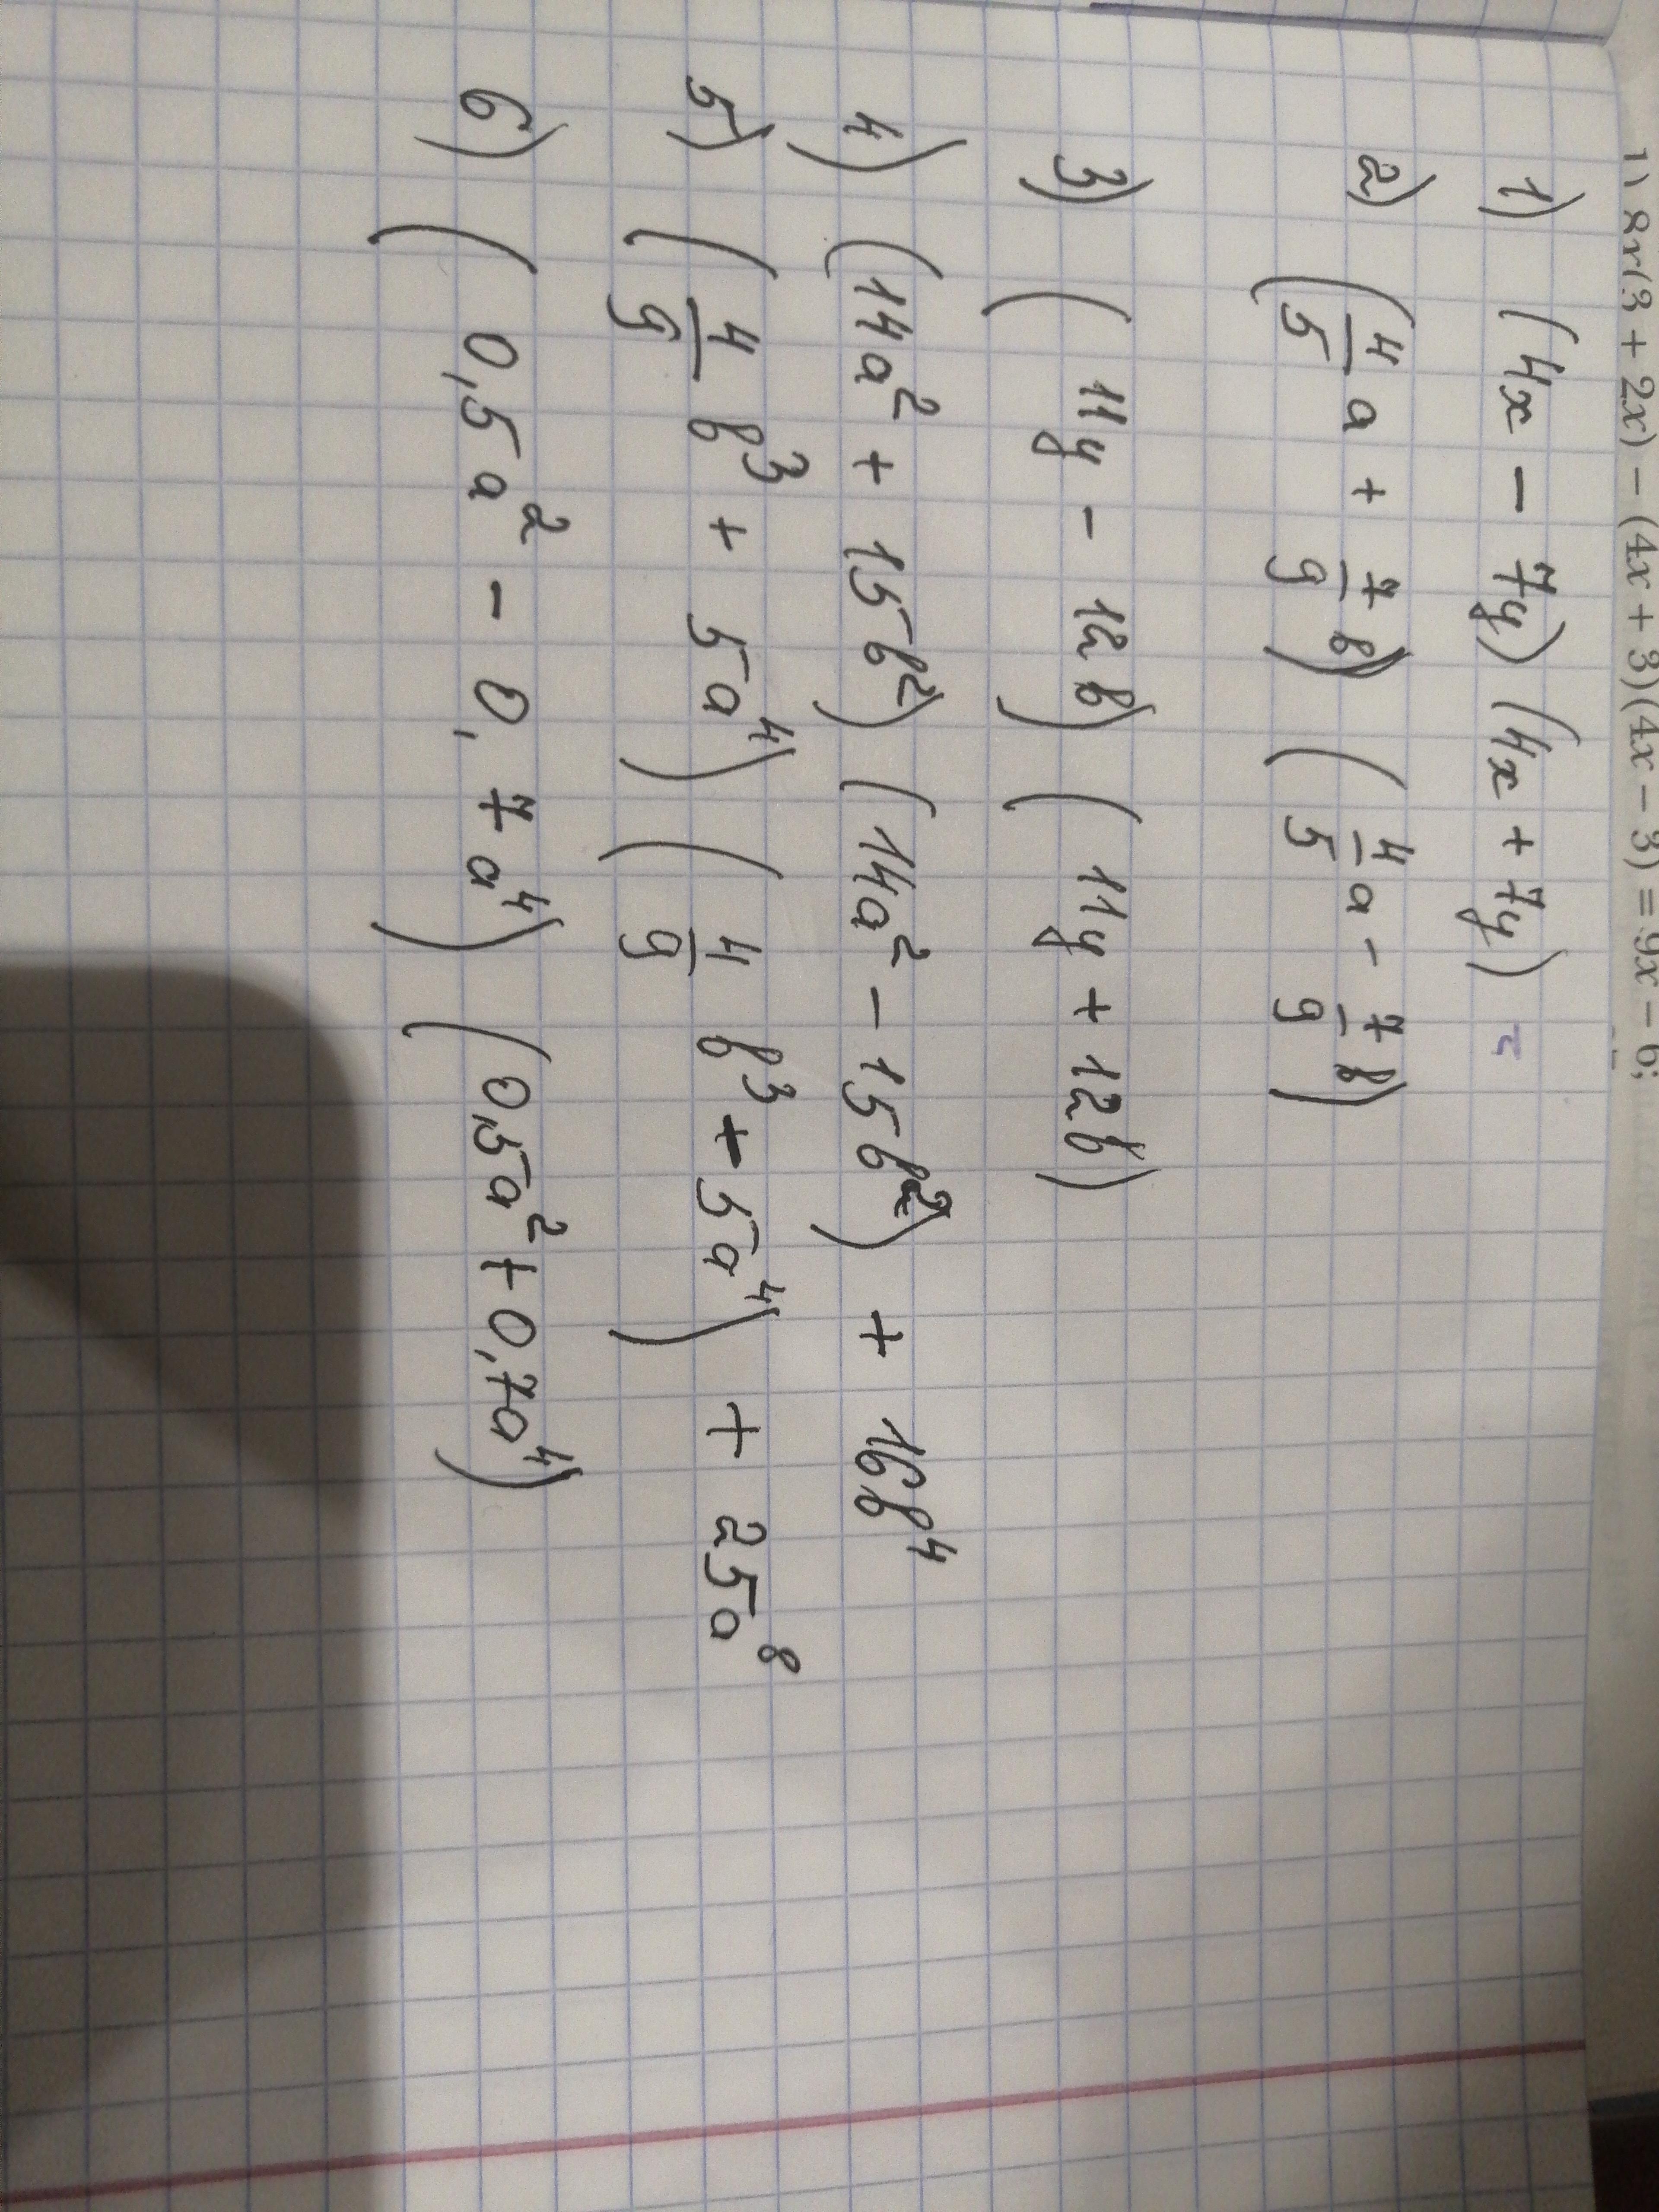 1) 8x(3 + 2x) − (4x + 3)(4x − 3) = 9x − 6;
1) (4x − 7y) (4x + 7y) =
2) (4/5 a + 7/9 b) (4/5 a − 7/9 b)
3) (11y − 12b) (11y + 12b)
4) (14a² + 15b²) (14a² − 15b²) + 16b⁴
5) (4/9 b³ + 5a⁴) (4/9 b³ + 5a⁴) + 25a⁸
6) (0,5a² − 0,7a⁴) (0,5a² + 0,7a⁴)